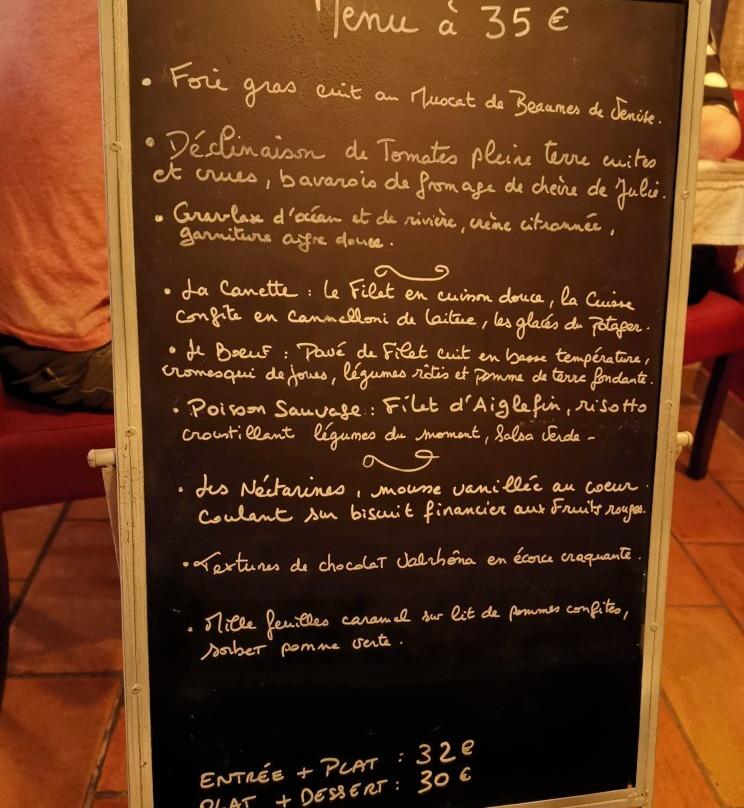 Menu à 35 €
• Foie gras cuit au Muscat de Beaumes de Venise.
• Déclinaison de Tomates pleine terre cuites
et crues, bavarois de fromage de chèvre de Julie.
• Gravlax d'océan et de rivière, crème citronnée,
garniture aigre douce.
• La Canette : le Filet en cuisson douce, la Cuisse
confite en cannelloni de laitue, les glacés du Potager.
• Le Boeuf : Pavé de Filet cuit en basse température,
cromesqui de joues, légumes rôtis et pomme de terre fondante.
• Poisson Sauvage : Filet d'Aiglefin, risotto
croustillant légumes du moment, Salsa Verde -
• Les Nectarines, mousse vanillée au coeur
coulant sur biscuit financier aux Fruits rouges.
• Textures de chocolat Valrhôna en écorce craquante.
• Mille feuilles caramel sur lit de pommes confites,
sorbet pomme verte.
ENTRÉE + PLAT : 32€
PLAT + DESSERT : 30 €